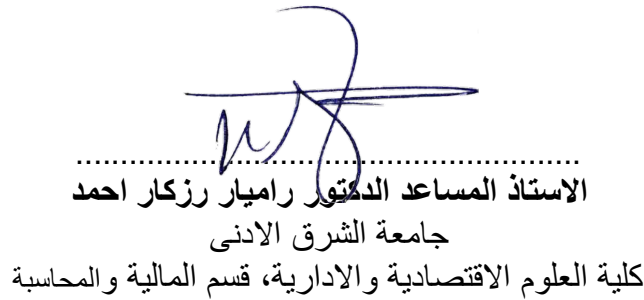 ....................................................
الاستاذ المساعد الدكتور راميار رزكار احمد
جامعة الشرق الادنى
كلية العلوم الاقتصادية والادارية، قسم المالية والمحاسبة